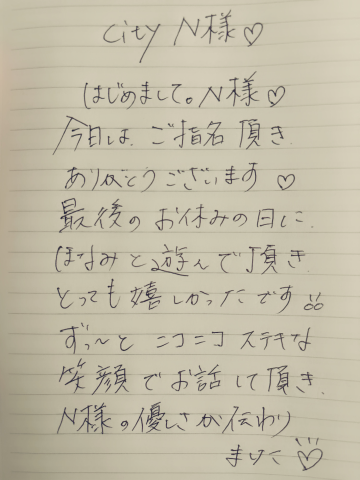 City N様♡
はじめまして。N様♡
今日は、ご指名頂き
ありがとうございます♡
最後のお休みの日に、
ほなみと遊んで頂き、
とっても嬉しかったです!!
ずっ〜とニコニコステキな
笑顔でお話して頂き、
N様の優しさが伝わり
ました♡